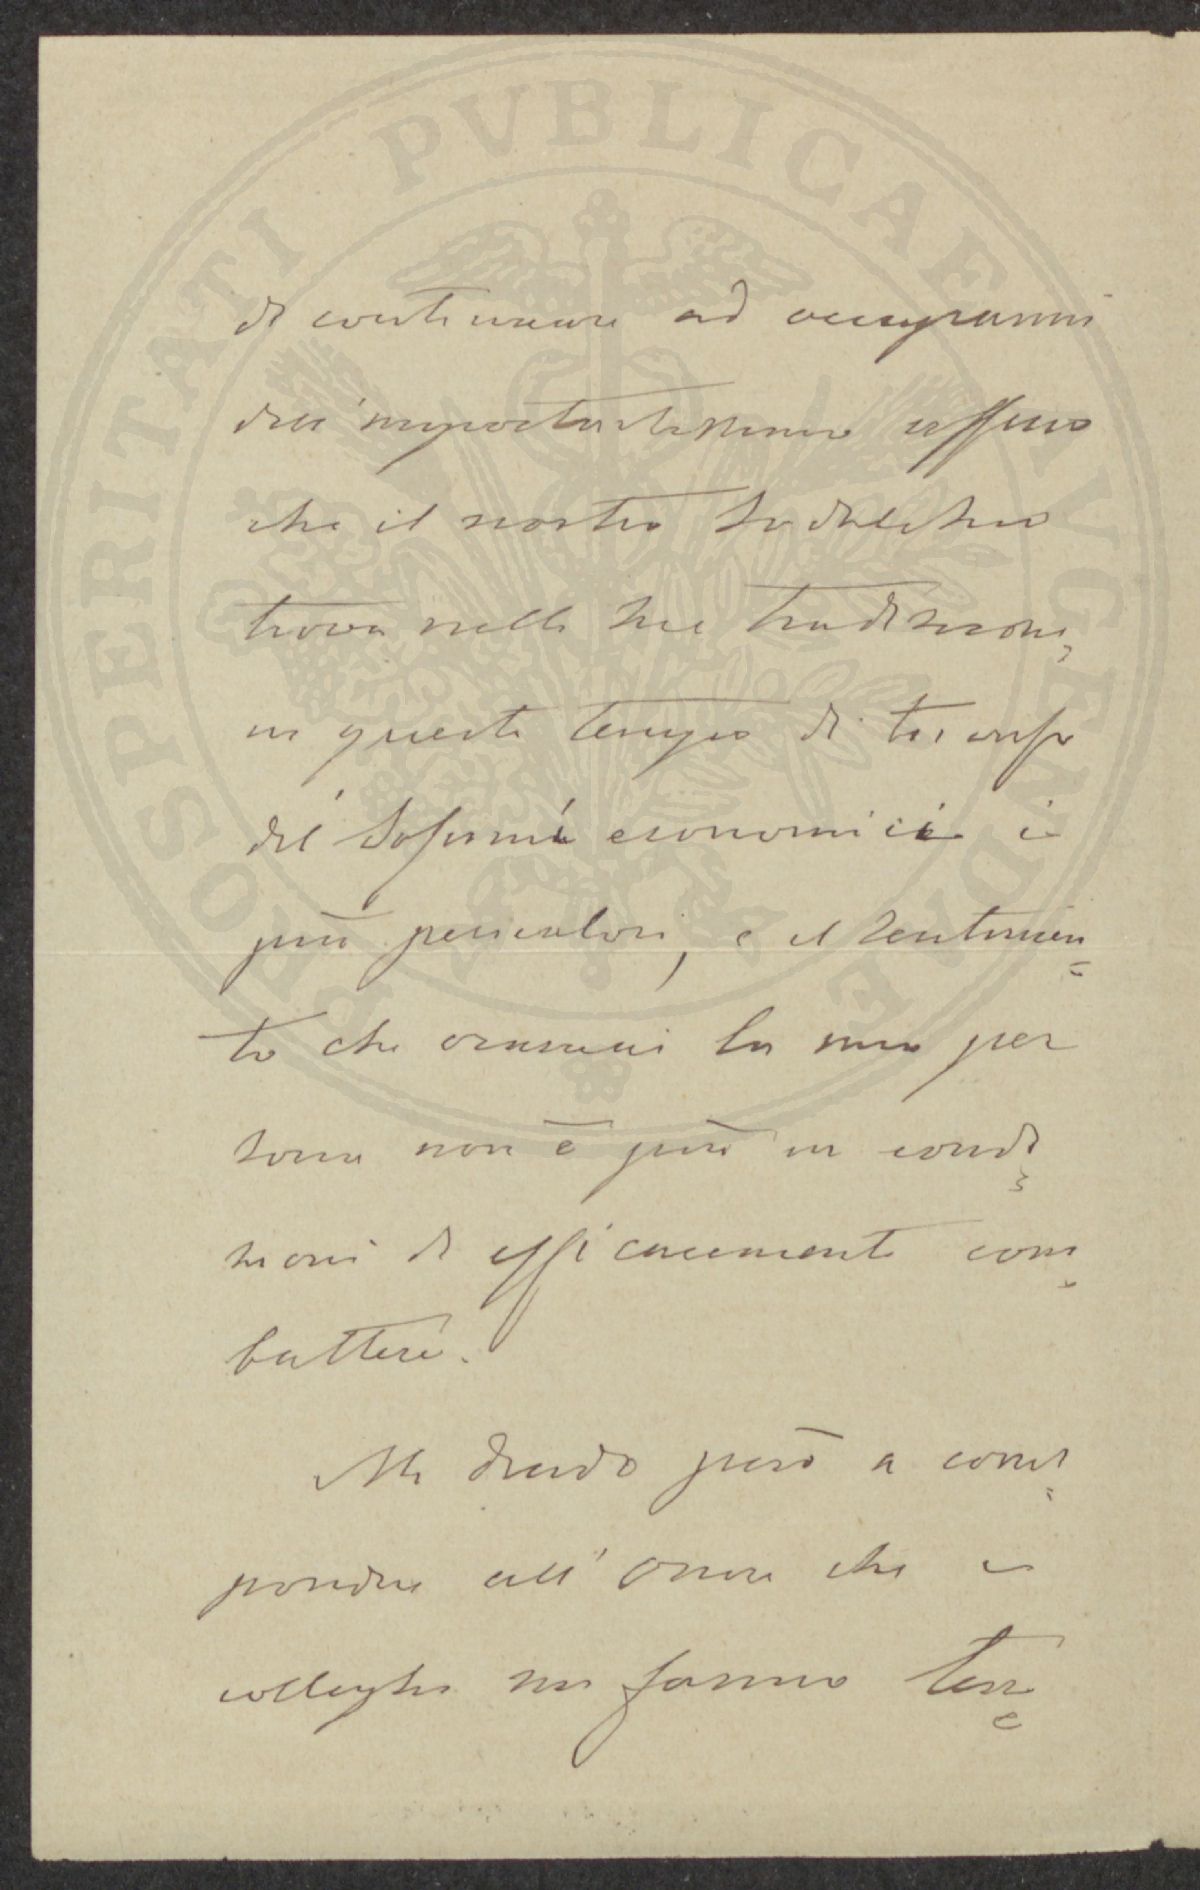 PROSPERITATI PVBLICAE AVGENDAE
di continuare ad occuparmi
dell'importantissimo ufficio
che il nostro Sodalizio
trova nelle sue tradizioni,
in questi tempi di trionfo
dei sofismi economici i
più pericolosi, e il sentimen=
to che oramai la mia per
sona non è più in condi
zioni di efficacemente com
battere.
Mi chiedo però a corris
pondere all'onore che i
colleghi mi fanno